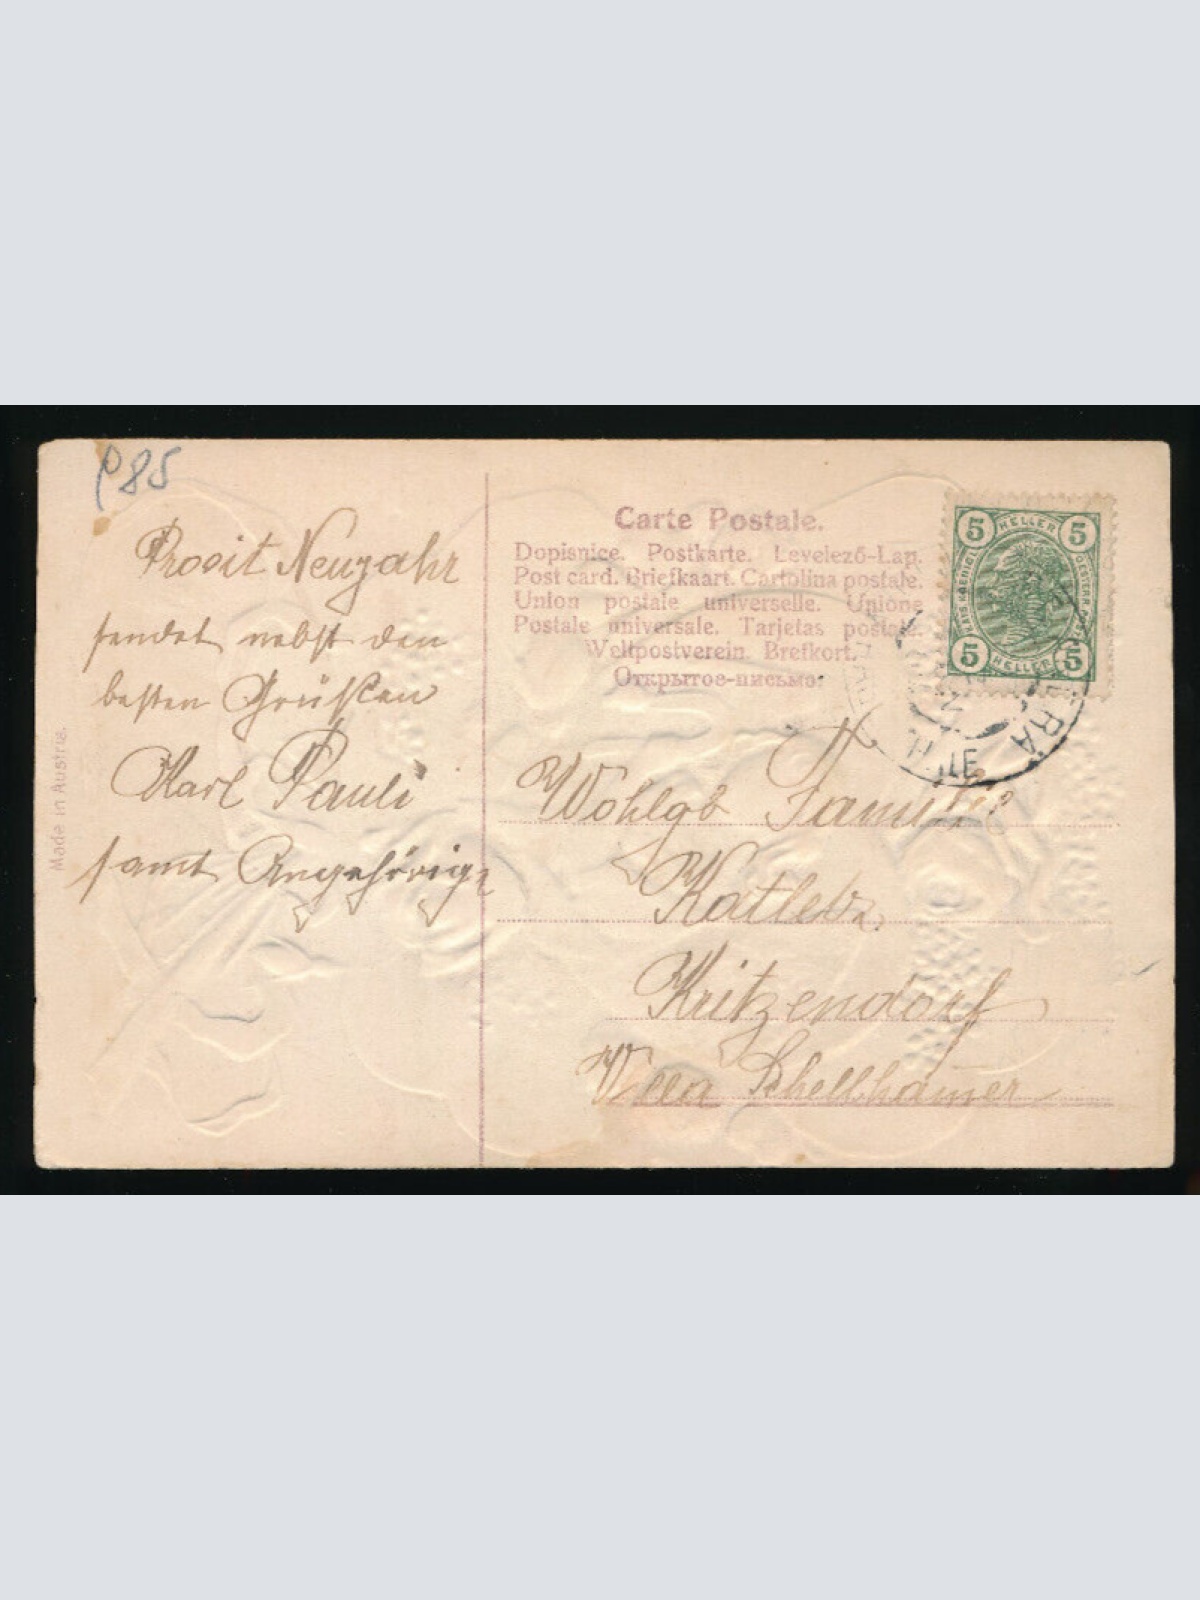 P85
Prosit Neujahr
sendet nebst den
besten Grüßen
Karl Pauli
samt Angehörige
Made in Austria.
Carte Postale.
Dopisnice. Postkarte. Levelező-Lap.
Post card. Briefkaart. Cartolina postale.
Union postale universelle. Unione
Postale universale. Tarjetas postale.
Weltpostverein. Brefkort.
Открытое-письмо.
5 HELLER 5
KAIS. KOENIGL. OESTERR. POST
5 HELLER 5
Wohlgb Familie
Kritzendorf
Villa Schellhamer